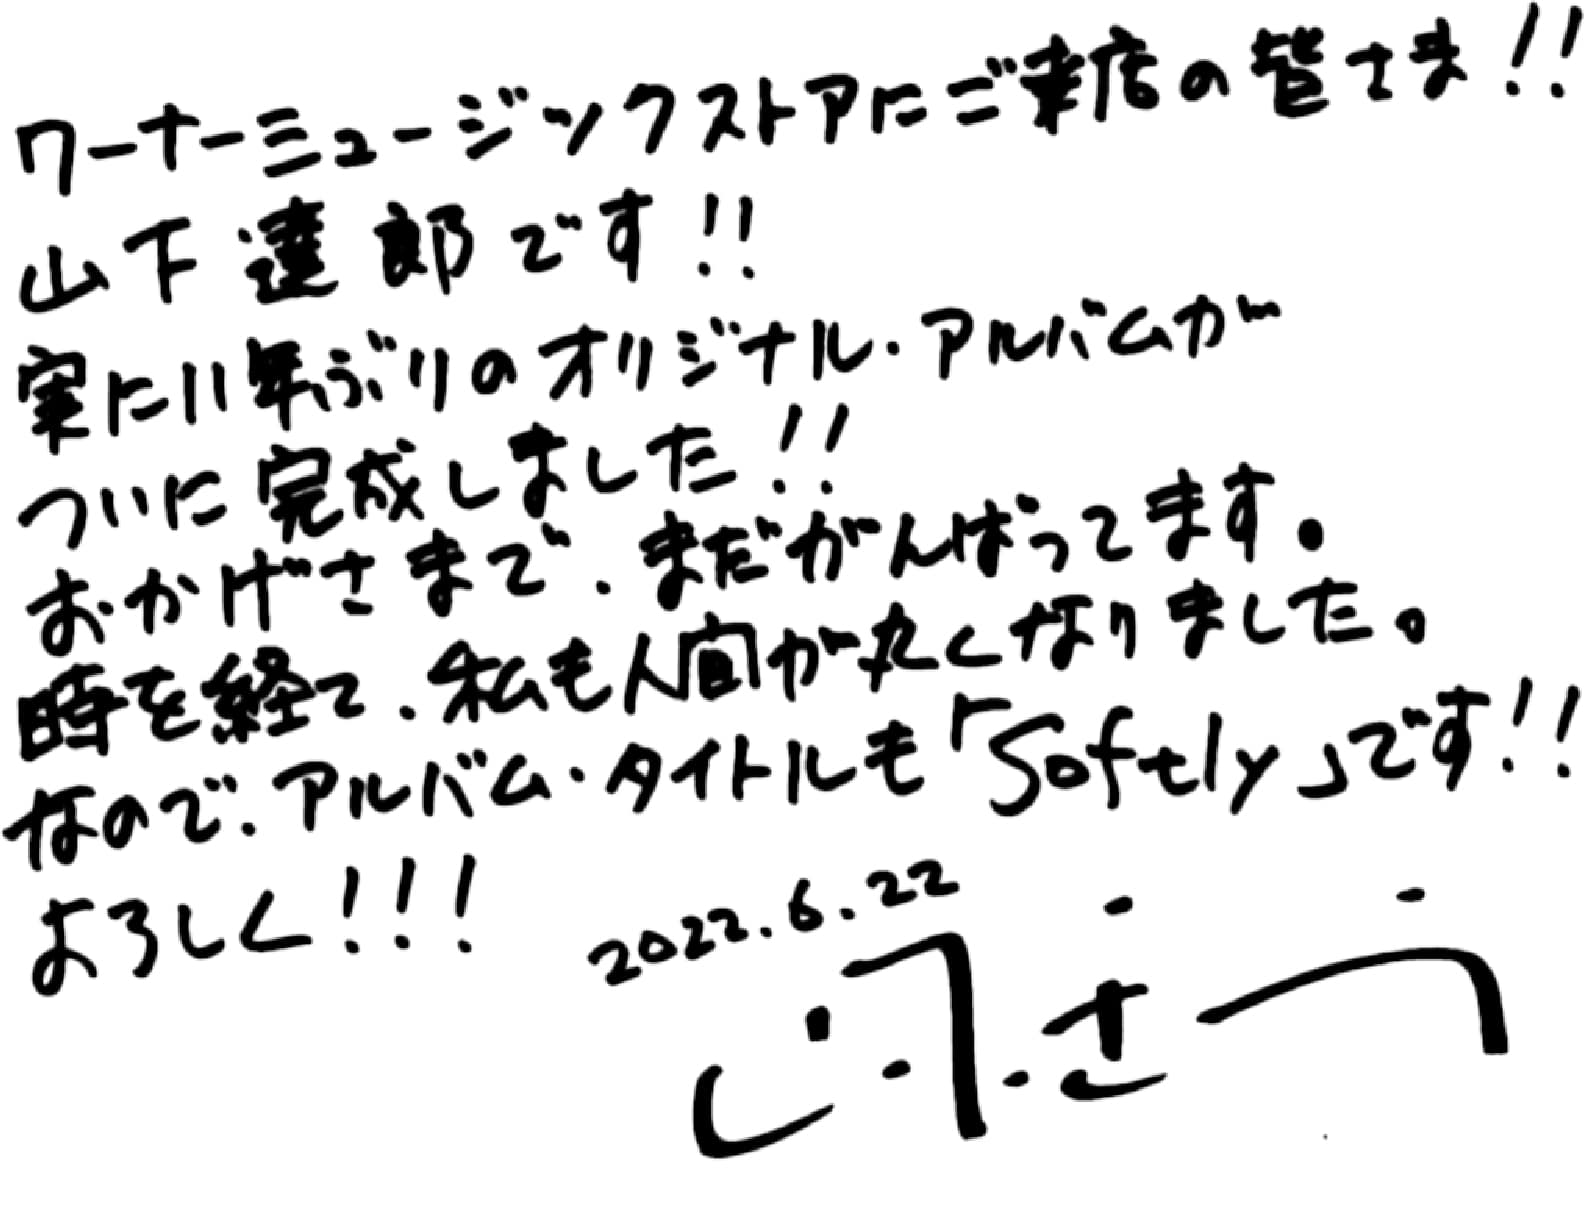 ワーナーミュージックストアにご来店の皆さま!!
山下達郎です!!
実に11年ぶりのオリジナル・アルバムが
ついに完成しました!!
おかげさまで、まだがんばってます。
時を経て、私も人間が丸くなりました。
なので、アルバム・タイトルも「Softly」です!!
よろしく!!!
2022.6.22